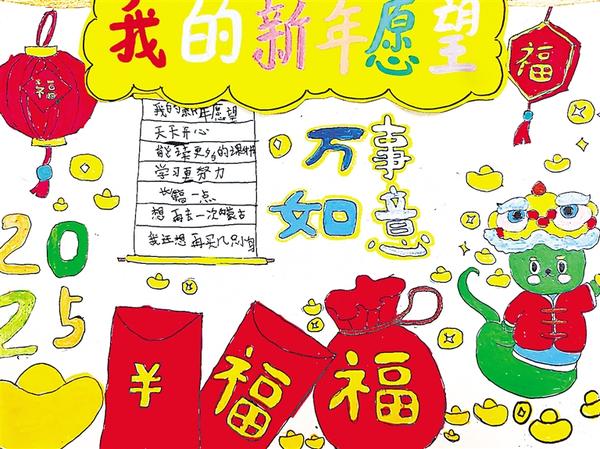 我的新年愿望
福
福
我的新年愿望
天天开心
学习更努力
一点
想再去一次蒙古
我还想再买几只
万事
如意
2025
¥
福
福